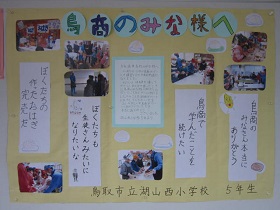 鳥商のみな様へ
鳥商の
みなさん本当に
ありがとう!
鳥商で
学んだことを
続けたい
ぼくたちも
生徒さんみたいに
なりたいな
ぼくたちの
作ったちはぎ
完売だ
鳥取市立湖山西小学校 5年生